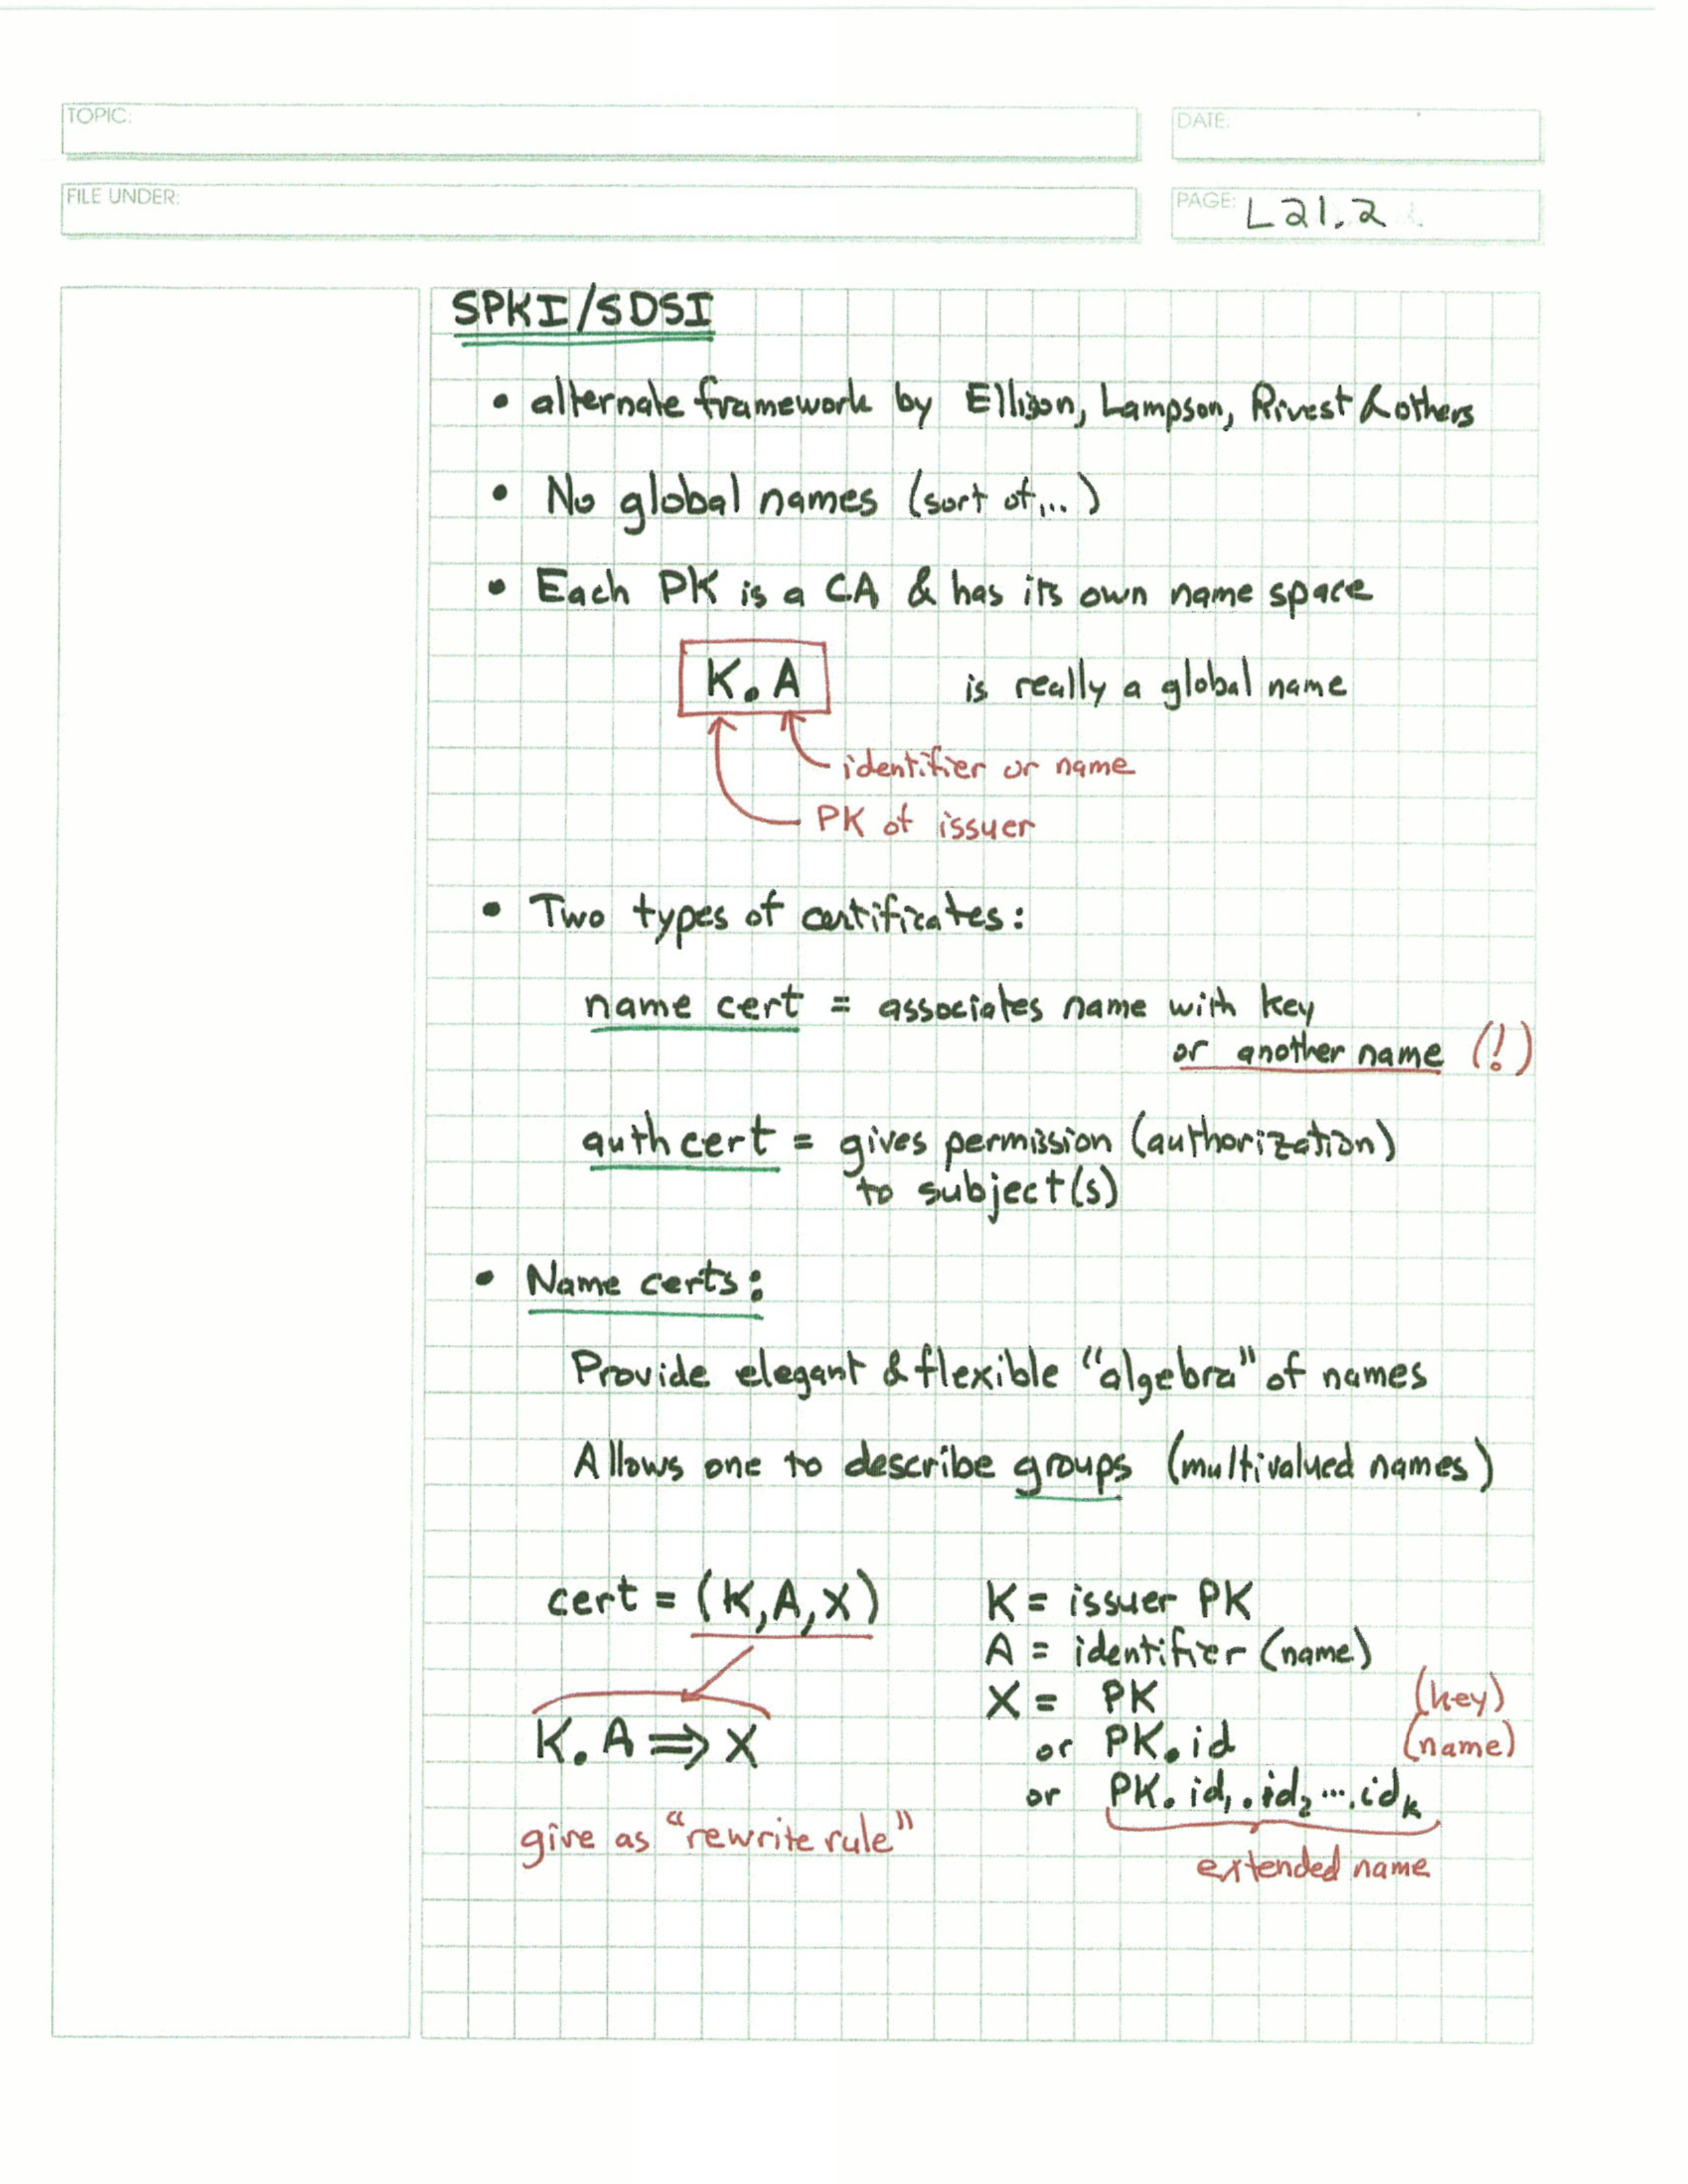 TOPIC:
DATE:
FILE UNDER:
PAGE: L21.2
SPKI/SDSI
• alternate framework by Ellison, Lampson, Rivest & others
• No global names (sort of...)
• Each PK is a CA & has its own name space
K.A is really a global name
identifier or name
PK of issuer
• Two types of certificates:
name cert = associates name with key
or another name (!)
auth cert = gives permission (authorization)
to subject(s)
• Name certs:
Provide elegant & flexible "algebra" of names
Allows one to describe groups (multivalued names)
cert = (K,A,X) K = issuer PK
A = identifier (name)
X = PK (key)
K.A ⇒ X or PK.id (name)
or PK.id₁.id₂....idₖ
give as "rewrite rule"
extended name